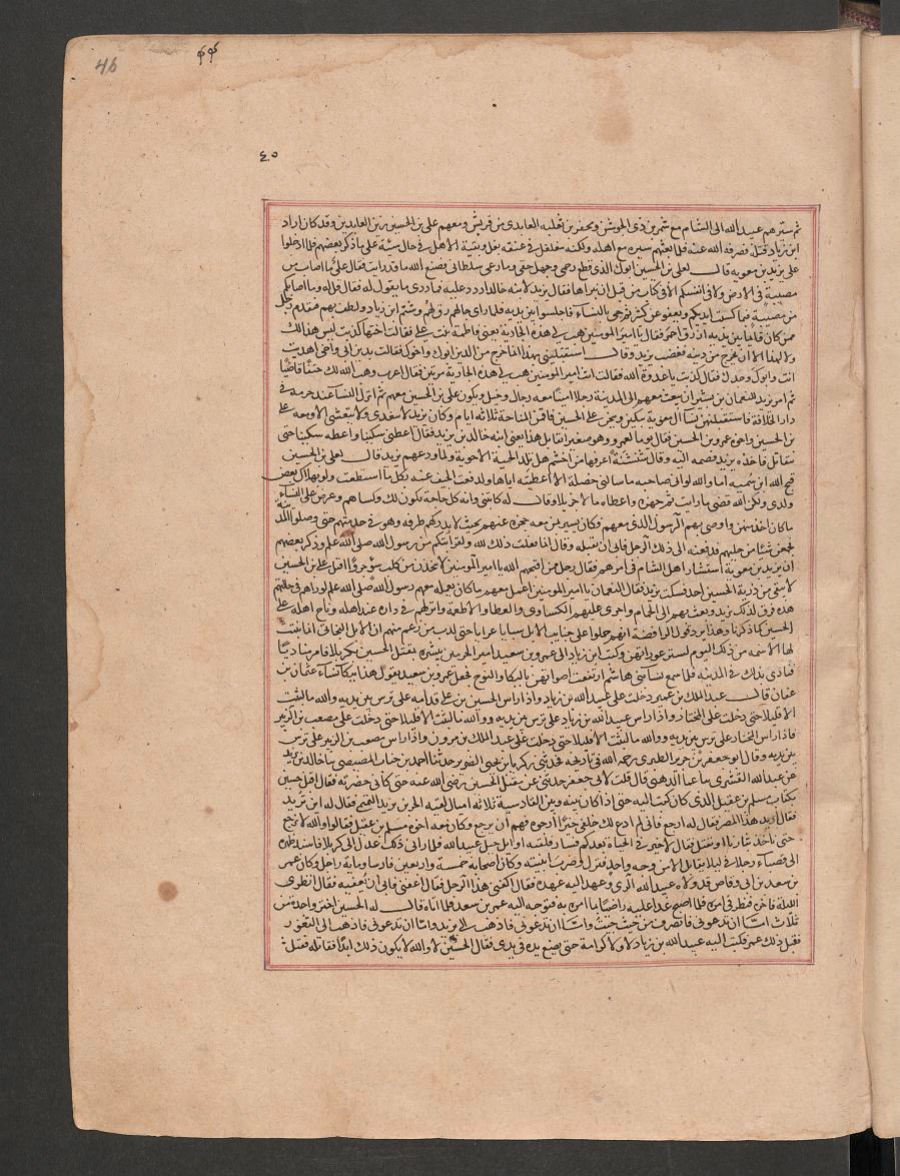 46
٤٥
ثم سيرهم عبيد الله الى الشام مع شمر بن ذى الجوشن ومحفر بن ثعلبه العايدى من قريش ومعهم على بن الحسين زين العابدين وقد كان اراد
ابن زياد قتله فصرفه الله عنه فلما بعثهم سيره مع اهله ولكنه مغلغل فى عنقه بغل وبقية الاهل فى حال سيئة على ما ذكر بعضهم فلما ادخلوا
على يزيد بن معويه قال لعلى بن الحسين ابوك الذى قطع رحمى وجهل حقى ونازعنى سلطانى فصنع الله ما قد رايت فقال على ما اصاب من
مصيبة فى الارض ولا فى انفسكم الا فى كتاب من قبل ان نبراها فقال يزيد لابنه خالد اردد عليه فما درى ما يقول له فقال قل له وما اصابكم
من مصيبة فبما كسبت ايديكم ويعفو عن كثير ثم جى بالنساء فاجلسوا بين يديه فلما راى حالهم رق لهم وشتم ابن زياد ولطف بهم فتقدم رجل
ممن كان قائما بين يديه ازرق احمر فقال يا امير المومنين هب لى هذه الجارية يعنى فاطمة بنت على فقالت اختها كذبت ليس هذا لك
ولا لهذا الا ان تخرج من دينه فغضب يزيد وقال استقبلينى بهذا انما خرج من الدين ابوك واخوك فقالت بدين ابى واخى اهتديت
انت وابوك وجدك فقال كذبت يا عدوة الله فقالت انت امير المومنين هب لى هذه الجارية مرتين فقال اعزب وهب الله لك حتفا قاضيا
ثم امر يزيد للنعمان بن بشير ان يبعث معهم الى المدينة رجلا امينا معه رجال وخيل ويكون على بن الحسين معهم ثم انزل النساء عند حرمه فى
دار الخلافة فاستقبلتهن نسا آل معوية يبكين وينحن على الحسين فاقمن المناحة ثلاثه ايام وكان يزيد لا يتغدى ولا يتعشى الا ومعه على
بن الحسين واخوه عمرو بن الحسين فقال يوما لعمرو وهو صغير اتقاتل هذا يعنى ابنه خالد بن يزيد فقال اعطنى سكينا واعطه سكينا حتى
نتقاتل فاخذه يزيد فضمه اليه وقال شنشنة اعرفها من اخشم هل تلد الحية الا حوية ولما ودعهم يزيد قال لعلى بن الحسين
قبح الله ابن سميه اما والله لو انى صاحبه ما سالنى خصلة الا اعطيته اياها ولدفعت الحتف عنه بكل ما استطعت ولو بهلاك بعض
ولدى ولكن الله قضى ما رايت ثم جهزه واعطاه مالا جزيلا وقال له كاتبنى وانه كل حاجة تكون لك وكساهم وعرض على النساء
ما كان اخذ منهن واوصى بهم الرسول الذى معهم فكان يسير بهن معه بمعزل عنهم بحيث لا يدركهم طرفه وهو فى خدمتهم حتى وصلوا المدينة
فجمعن شيئا من حليهم فدفعنه الى ذلك الرجل فابى ان يقبله وقال انما فعلت ذلك لله ولقرابتكم من رسول الله صلى الله عليه وسلم وذكر بعضهم
ان يزيد بن معوية استشار اهل الشام فى امرهم فقال رجل من اقبحهم الله يا امير المومنين لا تتخذن من كلب سوء جروا اقتل على بن الحسين
لا يبقى من ذرية الحسين احد فسكت يزيد فقال النعمان يا امير المومنين اعمل معهم ما كان يعمله معهم رسول الله صلى الله عليه وسلم لو راهم فى حالتهم
هذه فرق لذلك يزيد وبعث بهم الى الحمام واجرى عليهم الكساوى والعطا والاطعمة وانزلهم فى داره عند اهله وناح اهله على
الحسين كما ذكرنا وهذا يرد قول الرافضة انهم حملوا على جنايب الابل سبايا عرايا حتى كذب من زعم منهم ان الابل البخاتى انما نبتت
لها الاسنمه من ذلك اليوم لتستر عوراتهن وكتب ابن زياد الى عمرو بن سعيد امير الحرمين يبشره بمقتل الحسين بكربلا فامر مناديا
فنادى بذلك فى المدينه فلما سمع نسا بنى هاشم ارتفعت اصواتهن بالبكا والنوح فجعل عمرو بن سعيد يقول هذا ببكا نساء عثمان بن
عفان قال عبد الملك بن عمير دخلت على عبيد الله بن زياد واذا راس الحسين بن على قدامه على ترس بين يديه والله ما لبثت
الا قليلا حتى دخلت على المختار واذا راس عبيد الله بن زياد على ترس بين يديه ووالله ما لبثت الا قليلا حتى دخلت على مصعب بن الزبير
فاذا راس المختار على ترس بين يديه ووالله ما لبثت الا قليلا حتى دخلت على عبد الملك بن مرون واذا راس مصعب بن الزبير على ترس
بين يديه وقال ابو جعفر بن جرير الطبرى رحمه الله فى تاريخه حدثنى زكريا بن يحيى الضرير حدثنا احمد بن جناب المصيصى سا خالد بن يزيد
عن عبد الله القشرى سا عمار الدهنى قال قلت لابى جعفر حدثنى عن مقتل الحسين رضى الله عنه حتى كانى حضرته فقال اقبل حسين
بكتاب مسلم بن عقيل الذى كان كتب اليه حتى اذا كان بينه وبين القادسية ثلاثه اميال لقيه الحر بن يزيد التميمى فقال له اين تريد
فقال اريد هذا المصر فقال له ارجع فانى لم ادع لك خلفى خيرا ارجوه فهم ان يرجع وكان معه اخوه مسلم بن عقيل فقالوا والله لا نرجع
حتى ناخذ بثارنا او نقتل فقال لا خير فى الحياة بعدكم فسار فلقيته اوايل خيل عبيد الله فلما راى ذلك عدل الى كربلا فاسند ظهره
الى قصباء رحلا فى ليلا يقاتل الا من وجه واحد فنزل وضرب ابنيته وكان اصحابه خمسة واربعين فارسا وماية راجل وكان عمر
بن سعد بن ابى وقاص قد ولاه عبيد الله الرى وعهد اليه عهده فقال اكفنى هذا الرجل فقال اعفنى فابى ان يعفيه فقال انظرنى
الليلة فاخره فنظر فى امره فلما اصبح غدا عليه راضيا بما امر به فتوجه اليه عمر بن سعد فلما اتاه قال له الحسين اختر واحدة من
ثلاث اما ان تدعونى فانصرف من حيث جئت واما ان تدعونى فاذهب الى يزيد واما ان تدعونى فاذهب الى الثغور
فقبل ذلك عمر فكتب اليه عبيد الله بن زياد لا ولا كرامة حتى يضع يده فى يدى فقال الحسين لا والله لا يكون ذلك ابدا فقاتله فقتل